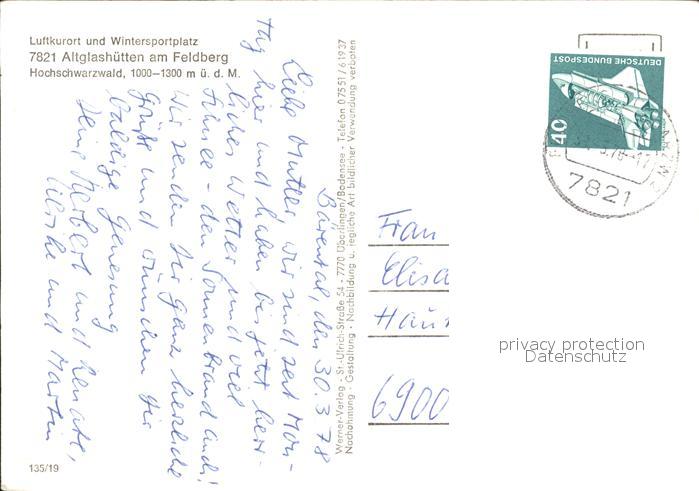 Luftkurort und Wintersportplatz
7821 Altglashütten am Feldberg
Hochschwarzwald, 1000–1300 m ü. d. M.
Bärental, den 30.3.78
Liebe Mutter, wir sind seit Mon-
tag hier und haben bis jetzt herr-
liches Wetter und viel
Schnee - den Sonnenbrand auch!
Wir senden Dir ganz herzliche
Grüße und wünschen Dir
baldige Genesung
Deine Herbert und Renate,
Ulrike und Martin
135/19
Werner-Verlag · St.-Ulrich-Straße 54 · 7770 Überlingen/Bodensee · Telefon 07551/61937
Nachahmung · Gestaltung · Nachbildung u. regliche Art bildlicher Verwendung verboten
DEUTSCHE BUNDESPOST
40
7821
Frau
Elisa
Hau
6900
privacy protection
Datenschutz